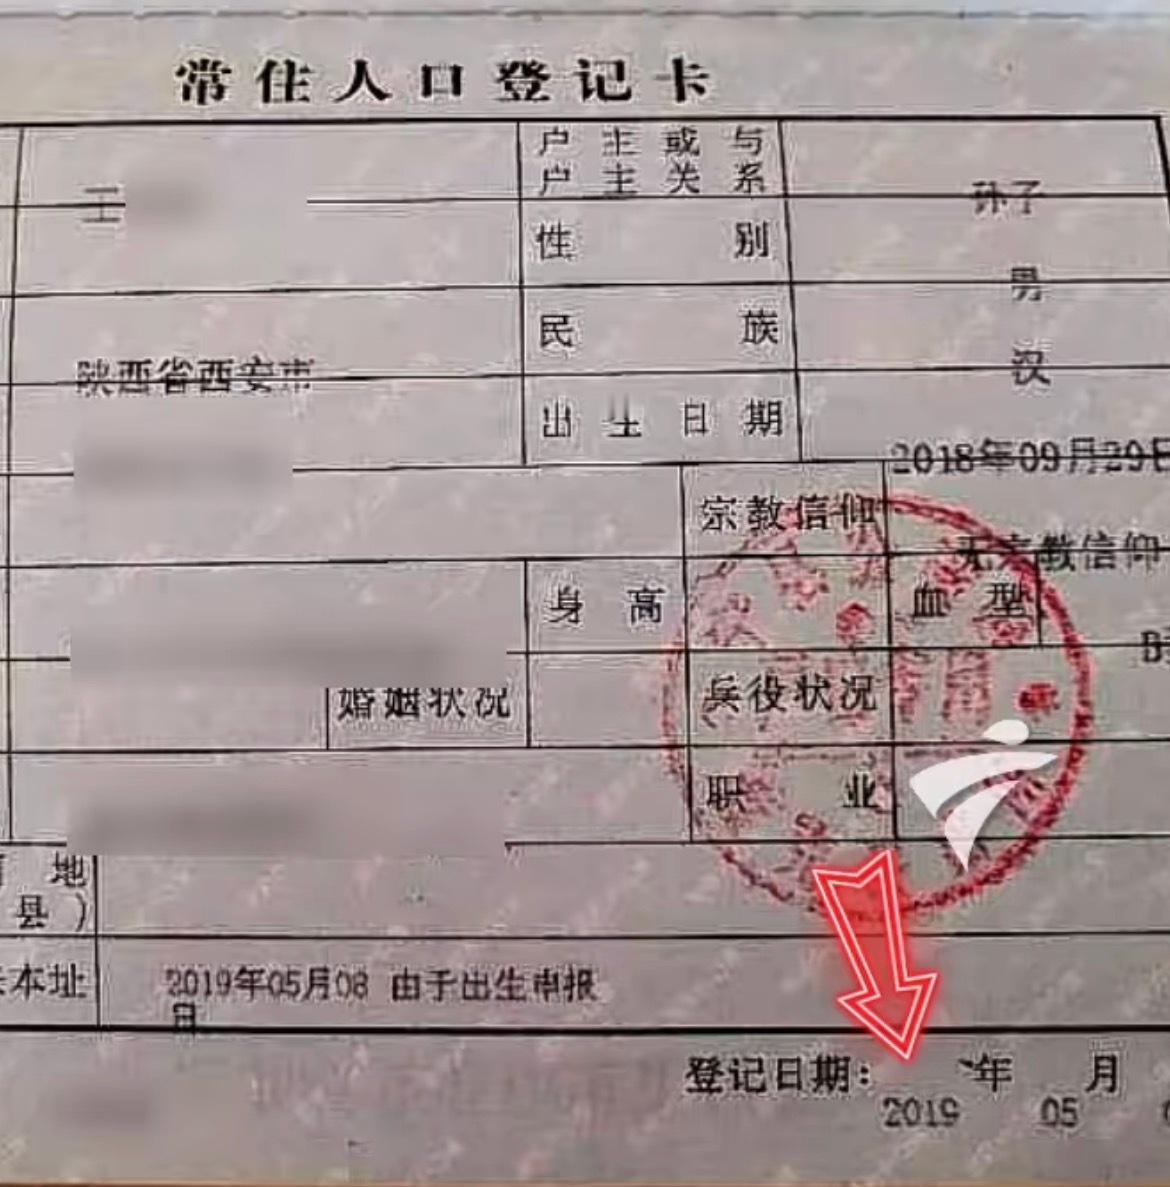 常住人口登记卡
王
户主或与
户主关系
孙子
性别
男
陕西省西安市
民族
汉
出生日期
2018年09月29日
宗教信仰
无宗教信仰
身高
血型
B
婚姻状况
兵役状况
职业
地
县）
本址
2019年05月08 由于出生申报
日
登记日期：
年 月
2019 05